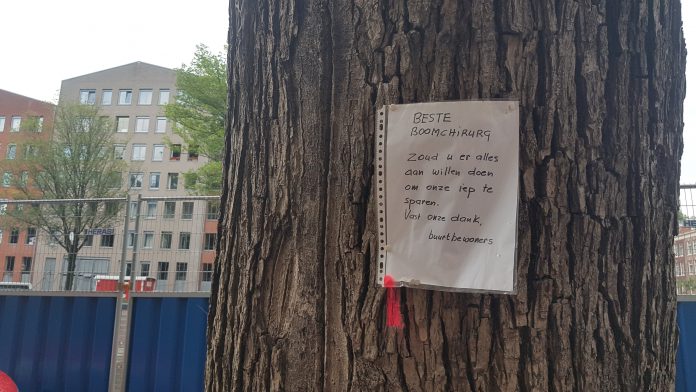 BESTE
BOOMCHIRURG
Zoud u er alles
aan willen doen
om onze iep te
sparen.
Vast onze dank,
buurtbewoners